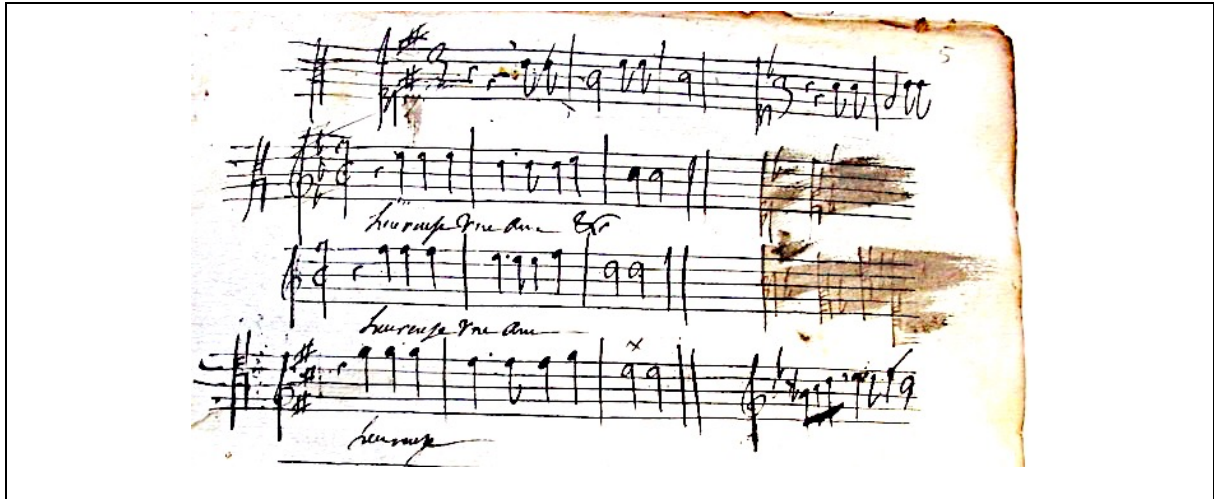 5
heureuse Une ame &c
heureuse Une ame
heureuse